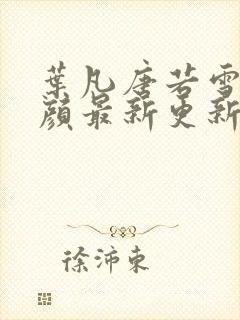 葉凡唐若雪
顏最新更新
徐沛東